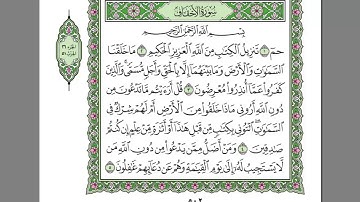 سُورَةُ الأَحْقَافِ
بِسْمِ اللَّهِ الرَّحْمَٰنِ الرَّحِيمِ
حمٓ ١ تَنزِيلُ ٱلْكِتَٰبِ مِنَ ٱللَّهِ ٱلْعَزِيزِ ٱلْحَكِيمِ ٢ مَا خَلَقْنَا
ٱلسَّمَٰوَٰتِ وَٱلْأَرْضَ وَمَا بَيْنَهُمَآ إِلَّا بِٱلْحَقِّ وَأَجَلٍ مُّسَمًّى وَٱلَّذِينَ
كَفَرُوا۟ عَمَّآ أُنذِرُوا۟ مُعْرِضُونَ ٣ قُلْ أَرَءَيْتُم مَّا تَدْعُونَ مِن
دُونِ ٱللَّهِ أَرُونِى مَاذَا خَلَقُوا۟ مِنَ ٱلْأَرْضِ أَمْ لَهُمْ شِرْكٌ فِى
ٱلسَّمَٰوَٰتِ ٱئْتُونِى بِكِتَٰبٍ مِّن قَبْلِ هَٰذَآ أَوْ أَثَٰرَةٍ مِّنْ عِلْمٍ إِن كُنتُمْ
صَٰدِقِينَ ٤ وَمَنْ أَضَلُّ مِمَّن يَدْعُوا۟ مِن دُونِ ٱللَّهِ مَن
لَّا يَسْتَجِيبُ لَهُۥٓ إِلَىٰ يَوْمِ ٱلْقِيَٰمَةِ وَهُمْ عَن دُعَآئِهِمْ غَٰفِلُونَ ٥
٥٠٢